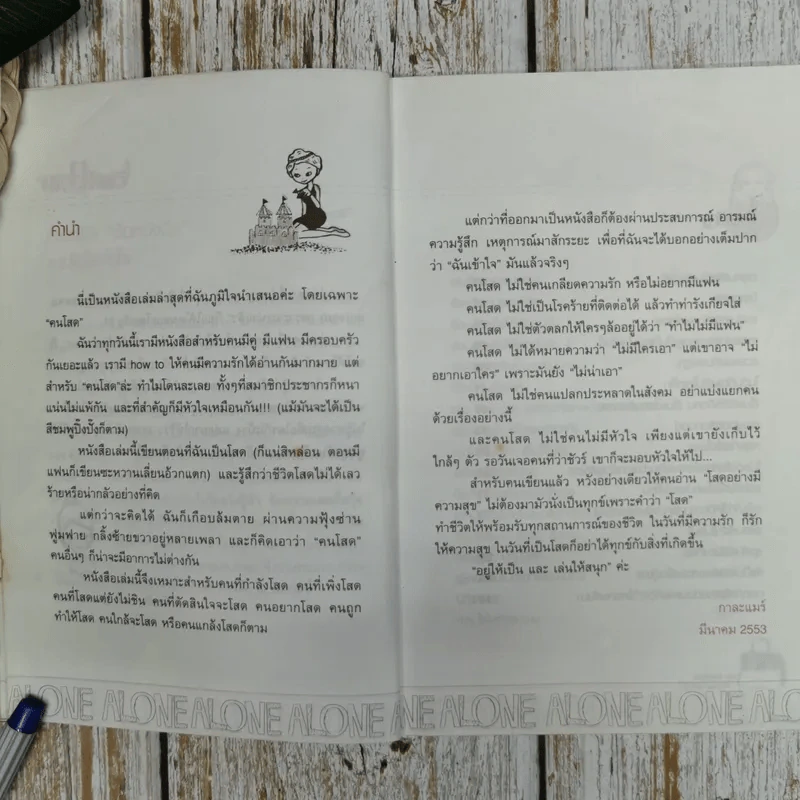 คำนำ
นี่เป็นหนังสือเล่มล่าสุดที่ฉันภูมิใจนำเสนอค่ะ โดยเฉพาะ
“คนโสด”
ฉันว่าทุกวันนี้เรามีหนังสือสำหรับคนมีคู่ มีแฟน มีครอบครัว
กันเยอะแล้ว เรามี how to ให้คนมีความรักได้อ่านกันมากมาย แต่
สำหรับ “คนโสด”ล่ะ ทำไมโดนละเลย ทั้งๆที่สมาชิกประชากรก็หนา
แน่นไม่แพ้กัน และที่สำคัญก็มีหัวใจเหมือนกัน!!! (แม้มันจะได้เป็น
สีชมพูปิ๊งปั๊งก็ตาม)
หนังสือเล่มนี้เขียนตอนที่ฉันเป็นโสด (ก็แน่สิหล่อน ตอนมี
แฟนก็เขียนซะหวานเลี่ยนอ้วกแตก) และรู้สึกว่าชีวิตโสดไม่ได้เลว
ร้ายหรือน่ากลัวอย่างที่คิด
แต่กว่าจะคิดได้ ฉันก็เกือบล้มตาย ผ่านความฟุ้งซ่าน
ฟูมฟาย กลิ้งซ้ายขวาอยู่หลายเพลา และก็คิดเอาว่า “คนโสด”
คนอื่นๆ ก็น่าจะมีอาการไม่ต่างกัน
หนังสือเล่มนี้จึงเหมาะสำหรับคนที่กำลังโสด คนที่เพิ่งโสด
คนที่โสดแต่ยังไม่ชิน คนที่ตัดสินใจจะโสด คนอยากโสด คนถูก
ทำให้โสด คนใกล้จะโสด หรือคนแกล้งโสดก็ตาม
แต่กว่าที่ออกมาเป็นหนังสือก็ต้องผ่านประสบการณ์ อารมณ์
ความรู้สึก เหตุการณ์มาสักระยะ เพื่อที่ฉันจะได้บอกอย่างเต็มปาก
ว่า “ฉันเข้าใจ” มันแล้วจริงๆ
คนโสด ไม่ใช่คนเกลียดความรัก หรือไม่อยากมีแฟน
คนโสด ไม่ใช่เป็นโรคร้ายที่ติดต่อได้ แล้วทำท่ารังเกียจใส่
คนโสด ไม่ใช่ตัวตลกให้ใครๆล้ออยู่ได้ว่า “ทำไมไม่มีแฟน”
คนโสด ไม่ได้หมายความว่า “ไม่มีใครเอา” แต่เขาอาจ “ไม่
อยากเอาใคร” เพราะมันยัง “ไม่น่าเอา”
คนโสด ไม่ใช่คนแปลกประหลาดในสังคม อย่าแบ่งแยกคน
ด้วยเรื่องอย่างนี้
และคนโสด ไม่ใช่คนไม่มีหัวใจ เพียงแต่เขายังเก็บไว้
ใกล้ๆ ตัว รอวันเจอคนที่ว่าชัวร์ เขาก็จะมอบหัวใจให้ไป...
สำหรับคนเขียนแล้ว หวังอย่างเดียวให้คนอ่าน “โสดอย่างมี
ความสุข” ไม่ต้องมามัวนั่งเป็นทุกข์เพราะคำว่า “โสด”
ทำชีวิตให้พร้อมรับทุกสถานการณ์ของชีวิต ในวันที่มีความรัก ก็รัก
ให้ความสุข ในวันที่เป็นโสดก็อย่าได้ทุกข์กับสิ่งที่เกิดขึ้น
“อยู่ให้เป็น และ เล่นให้สนุก” ค่ะ
กาละแมร์
มีนาคม 2553
ALONE ALONE ALONE ALONE ALONE ALONE ALONE ALONE